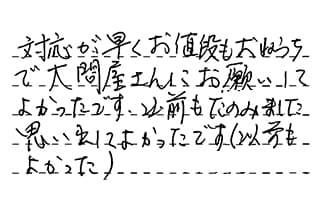 対応が早くお値段もお値うち
で大問屋さんにお願いして
よかったです、以前もたのみました
思い出してよかったです(以前も
よかった)